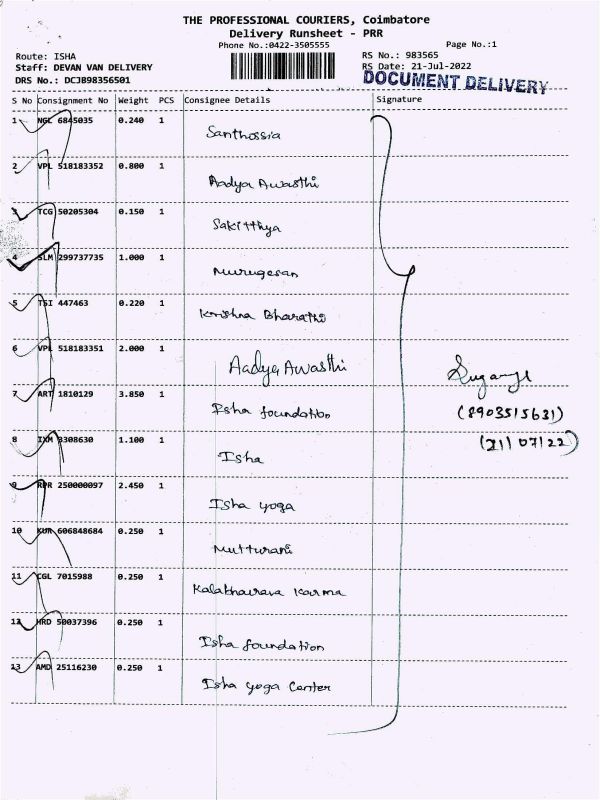 THE PROFESSIONAL COURIERS, Coimbatore
Delivery Runsheet - PRR
Phone No.:0422-3505555
Page No.:1
Route: ISHA
RS No.: 983565
Staff: DEVAN VAN DELIVERY
RS Date: 21-Jul-2022
DRS No.: DCJB98356501
DOCUMENT DELIVERY
S No Consignment No Weight PCS Consignee Details Signature
1 NGL 6845035 0.240 1 Santhossia
2 VPL 518183352 0.800 1 Aadya Awasthi
3 TCG 50205304 0.150 1 Sakitthya
4 SLM 299737735 1.000 1 Murugesan
5 TSI 447463 0.220 1 Krishna Bharathi
6 VPL 518183351 2.000 1 Aadya Awasthi
7 ART 1810129 3.850 1 Isha foundation
(8903515631)
8 IXM 3308630 1.100 1 Isha
(21/07/22)
9 RPR 250000097 2.450 1 Isha yoga
10 KUR 606848684 0.250 1 Mutturani
11 CGL 7015988 0.250 1 Kalabhairava Karma
12 HRD 50037396 0.250 1 Isha foundation
13 AMD 25116230 0.250 1 Isha yoga Center